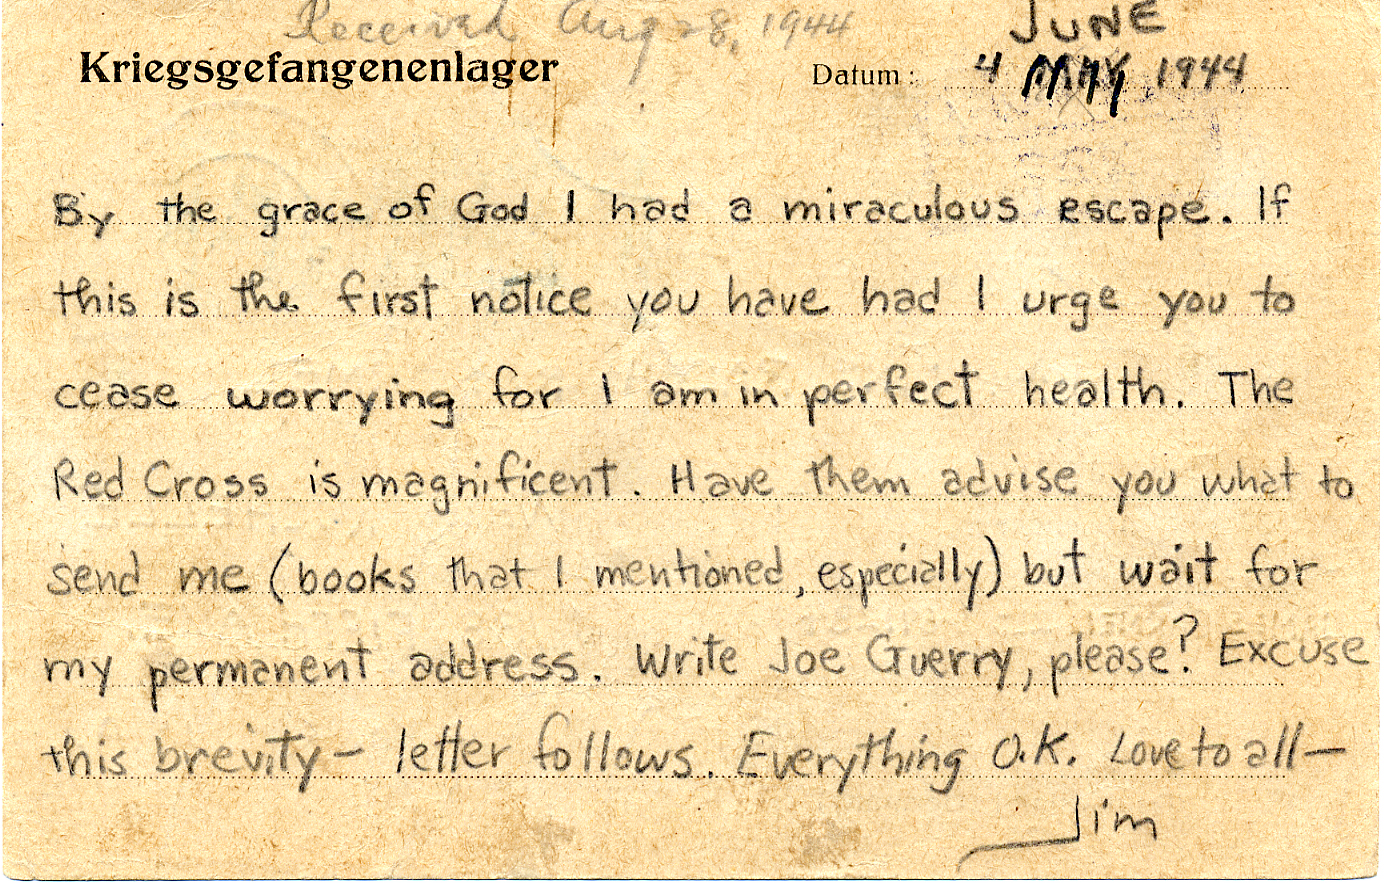 Received Aug 28, 1944
JUNE
Kriegsgefangenenlager Datum: 4 MAY 1944
By the grace of God I had a miraculous escape. If
this is the first notice you have had I urge you to
cease worrying for I am in perfect health. The
Red Cross is magnificent. Have them advise you what to
send me (books that I mentioned, especially) but wait for
my permanent address. Write Joe Guerry, please? Excuse
this brevity — letter follows. Everything O.K. Love to all—
Jim